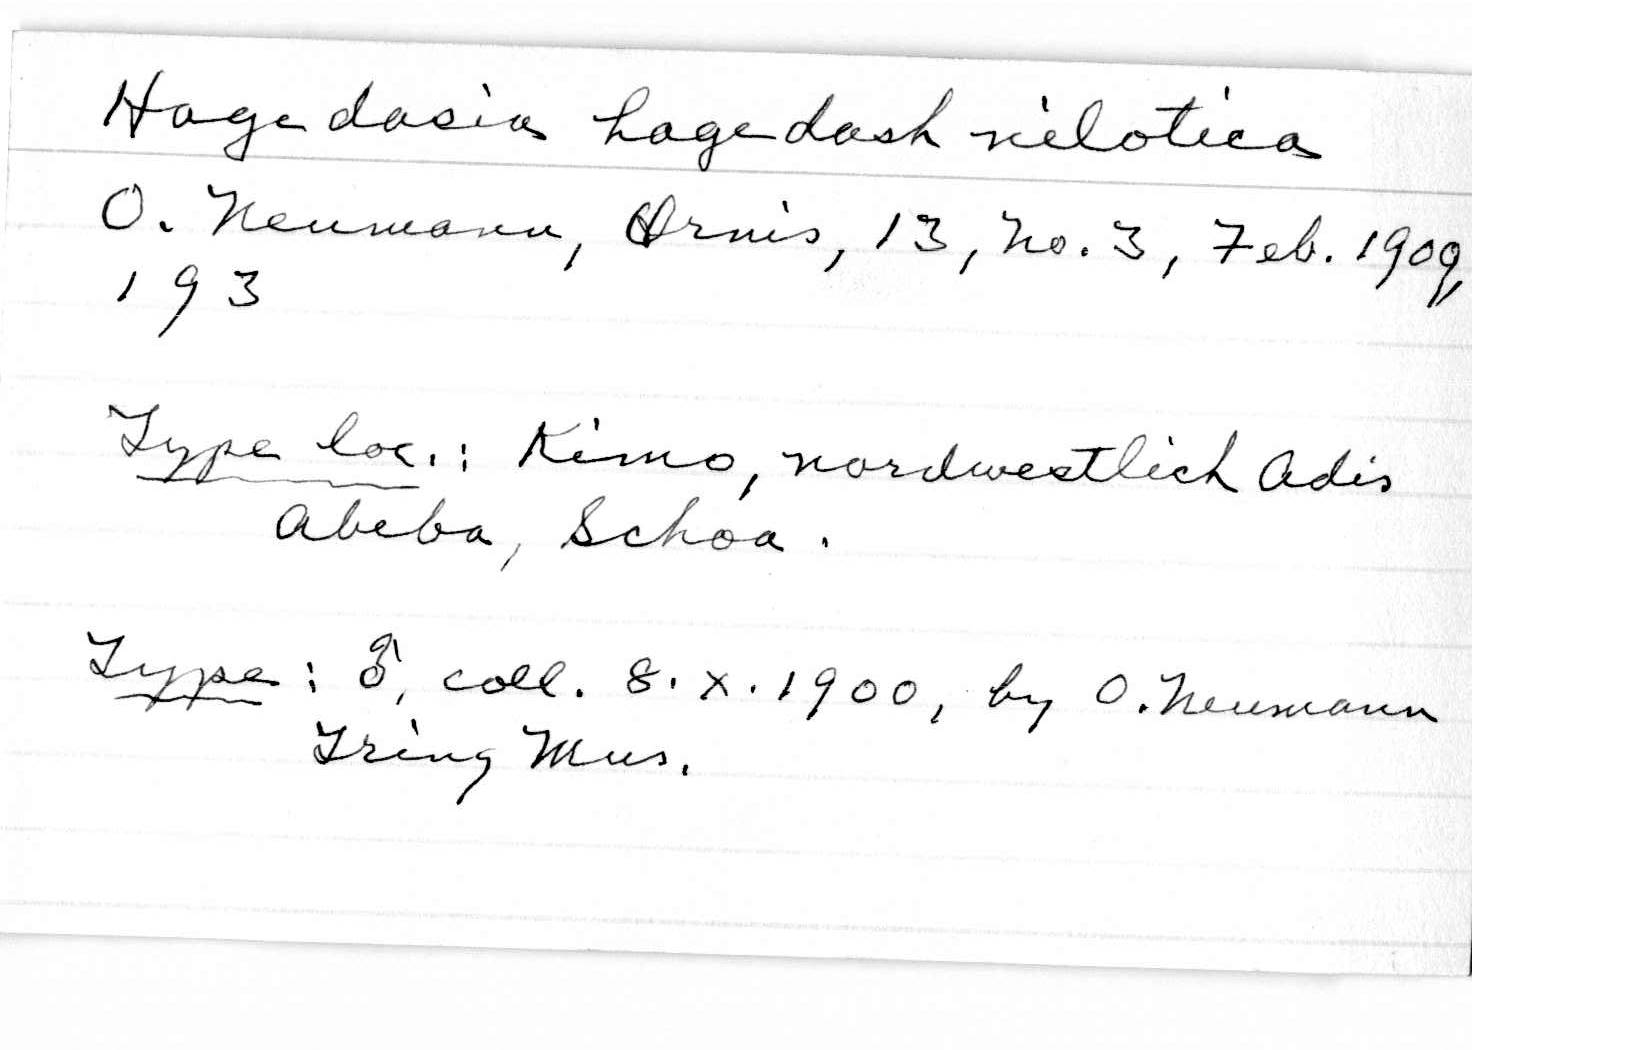 Hagedasia hagedash nilotica
O. Neumann, Ornis, 13, No. 3, Feb. 1909,
193
Type loc.: Kimo, nordwestlich Adis
Abeba, Schoa.
Type: ♂, coll. 8.X.1900, by O. Neumann
Tring Mus.